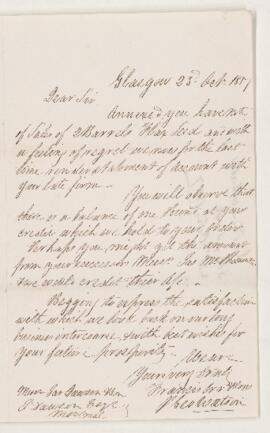 Glasgow 23d Oct 185
Dear Sir
Annexed you have
of Sale of 2 Barrels Flax Seed and with
a feeling of regret we now for the last
time render a statement of account with
your late firm.
You will observe that
there is a balance of one at your
credit which we hold to your order
Perhaps you might get the amount
from your successors Messrs
we credit their a/c.
Begging to express the satisfaction
with which we look back on our long
business intercourse & with best wishes for
your future prosperity. We are
Yours very truly
Francis
Messrs Dawson
Dawson Esqr
Montreal